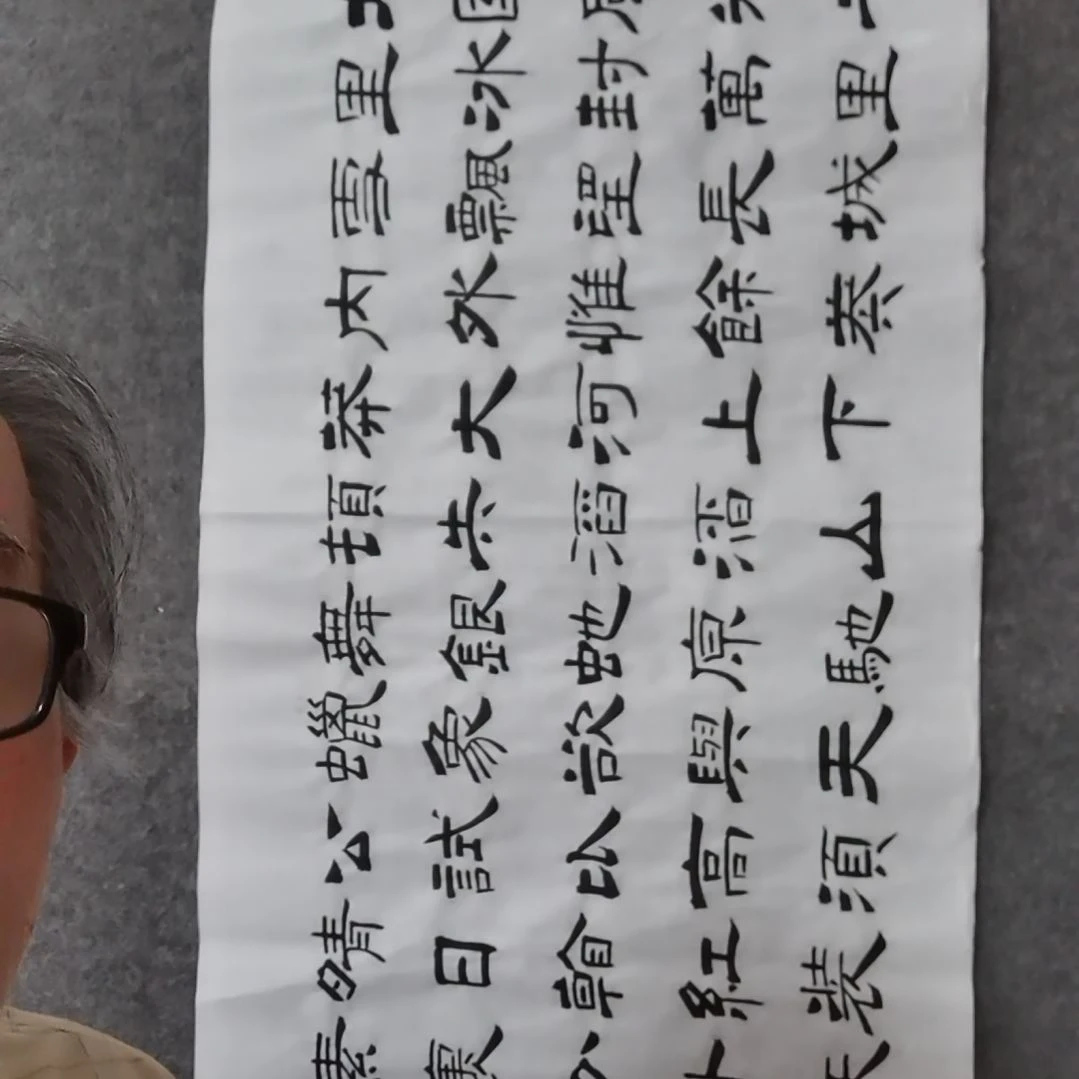 里冰封萬里
雪飄望長城
内外惟餘莽
莽大河上下
頓失滔滔山
舞銀蛇原馳
蠟象欲與天
公試比高須
晴日看紅裝
素裹